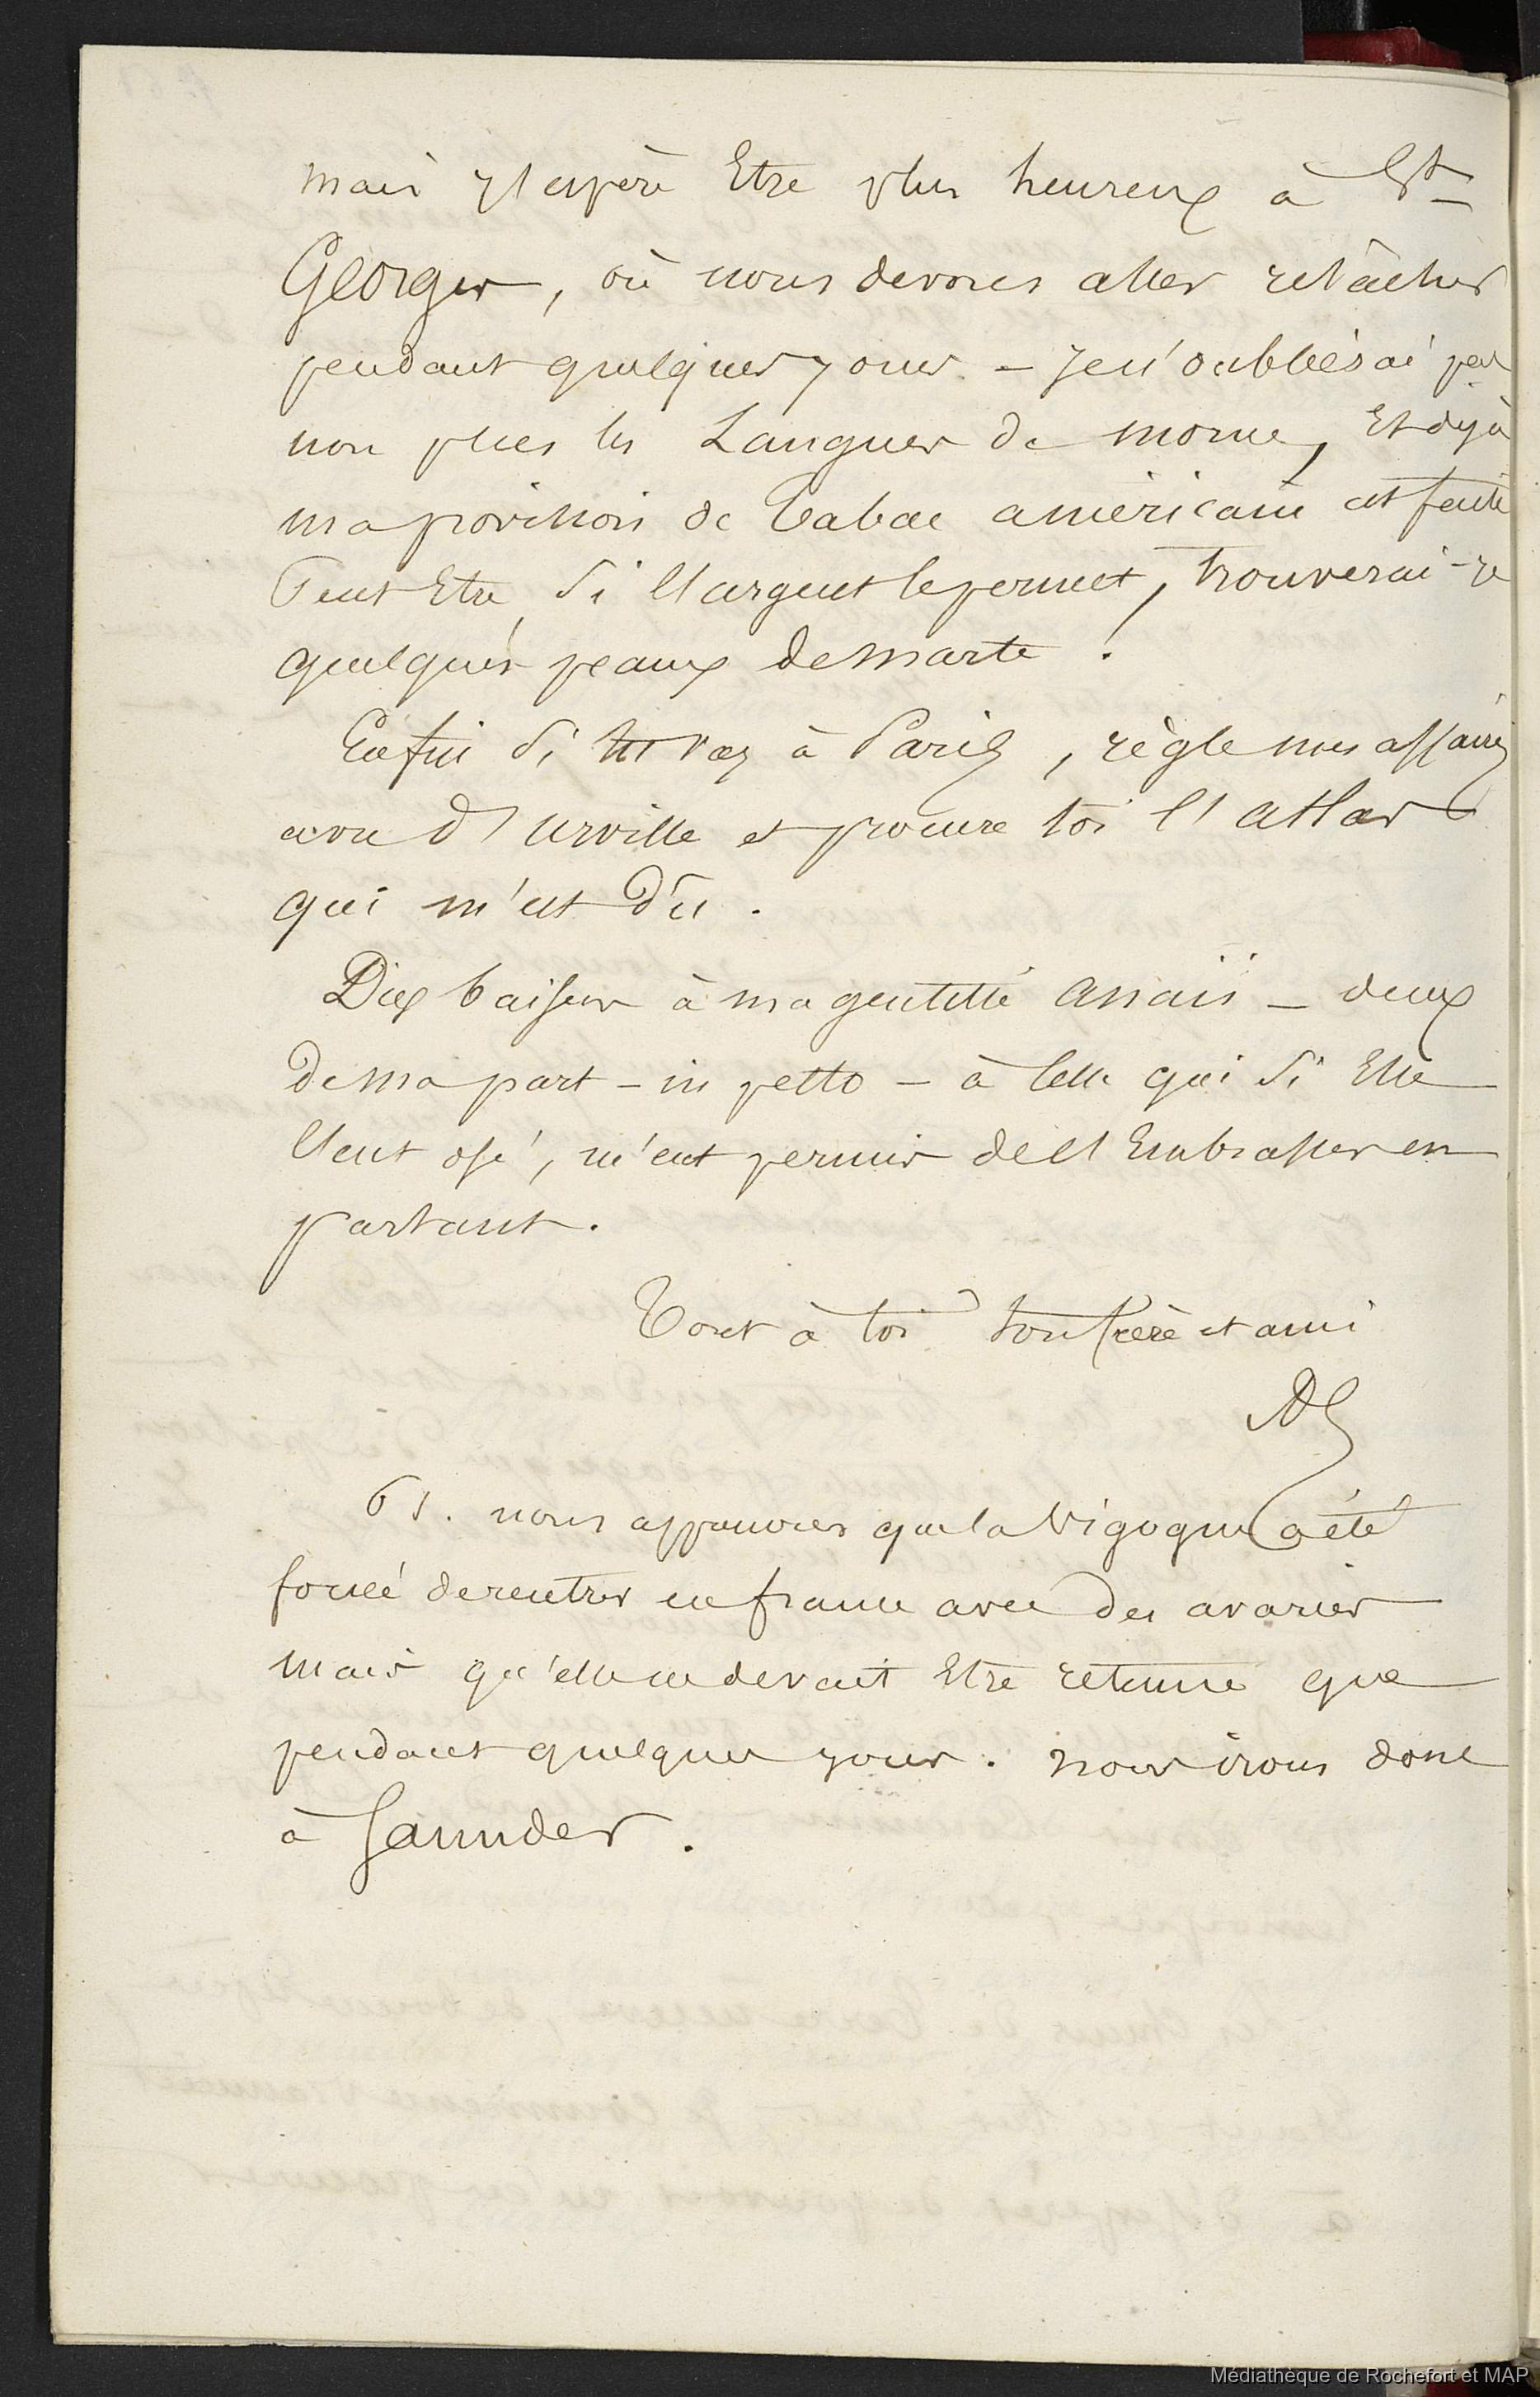 mais j'espère Etre plus heureux à St
Georges, où nous devons aller relâcher
pendant quelques jours. – Je n'oublierai pas
non plus les Langues de morue, Et déjà
ma provision de Tabac américain est faite
Peut Etre, si l'argent le permet, trouverai-je
quelques peaux de marte !
Enfin si tu vas à Paris, règle mes affaires
avec d'urville et procure toi l'atlas
qui m'est dû.
Dix baisers à ma gentille anaïs – deux
de ma part – in petto – à celle qui si Elle
l'eut osé, m'eut permis de l'Embrasser en
partant.
Tout à toi ton frère et ami
Ps. nous apprenons que la Vigogne a été
forcée de rentrer en france avec des avaries
mais qu'elle ne devait Etre retenue que
pendant quelques jours. nous irons donc
à
Médiathèque de Rochefort et MAP